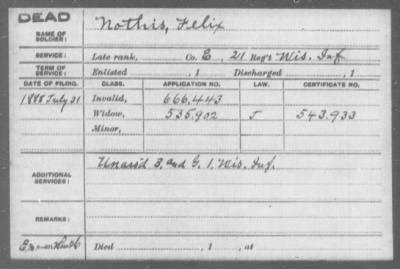 DEAD
NAME OF SOLDIER: Nothis, Felix
SERVICE: Late rank, Co. E, 21 Reg't Wis. Inf
TERM OF SERVICE: Enlisted , 1 Discharged , 1
DATE OF FILING. CLASS. APPLICATION NO. LAW. CERTIFICATE NO.
1888 July 31 Invalid, 666.443
Widow, 535,902 J 543.933
Minor,
ADDITIONAL SERVICES: Unass'd B. and G. 1, Wis. Inf.
REMARKS:
Died , 1 , at